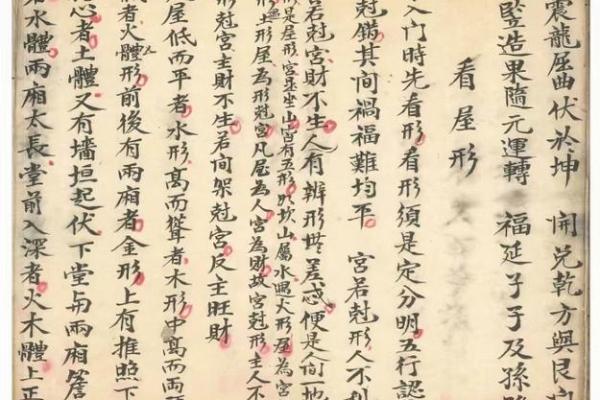 震龍屈曲伏於坤　開兌乾方與艮
豎造果隨元運轉　福延子子及孫
看屋形
入门時先看形看形須是定分明五行認
尅錯其间禍福難均平　宮若尅形人不利
若尅宮財不生人有辨形無差惑便是人间一地
形是屋形宮是坐山皆有五形於坎山屬水遇火形屋為宮
形土形屋為形尅宮凡屋為人宮為財故宮尅形主人不
形尅宮主財不生若间架尅宮反主旺財
屋低而平者水形高而聳者木形中高而两
者火體形前後有两廂者金形上有推照下
心者土體又有墻垣起伏下堂与两廂簷
水體两廂太長堂前入深者火木體上正